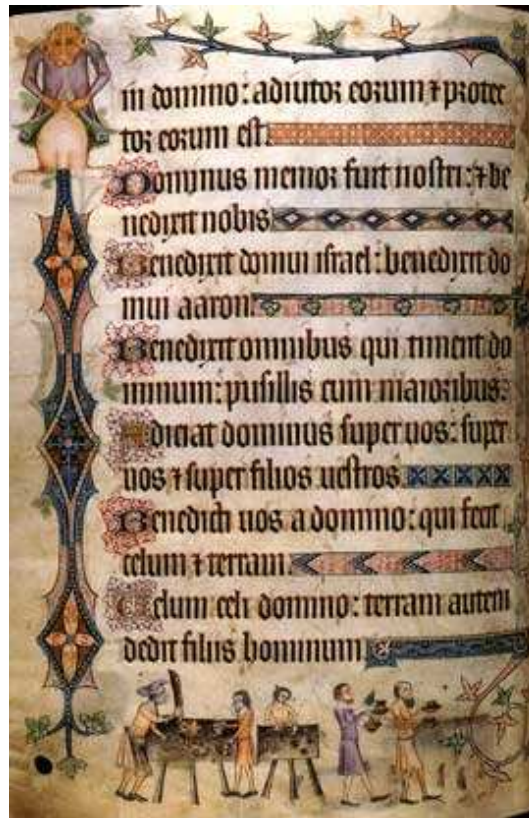 in domino: adiutor eorum ⁊ protec
tor eorum est.
Dominus memor fuit nostri: ⁊ be
nedixit nobis
Benedixit domui israel: benedixit do
mui aaron.
Benedixit omnibus qui timent do
minum: pusillis cum maioribus.
Adiciat dominus super uos: super
uos ⁊ super filios uestros.
Benedicti uos a domino: qui fecit
celum ⁊ terram.
Celum celi domino: terram autem
dedit filiis hominum